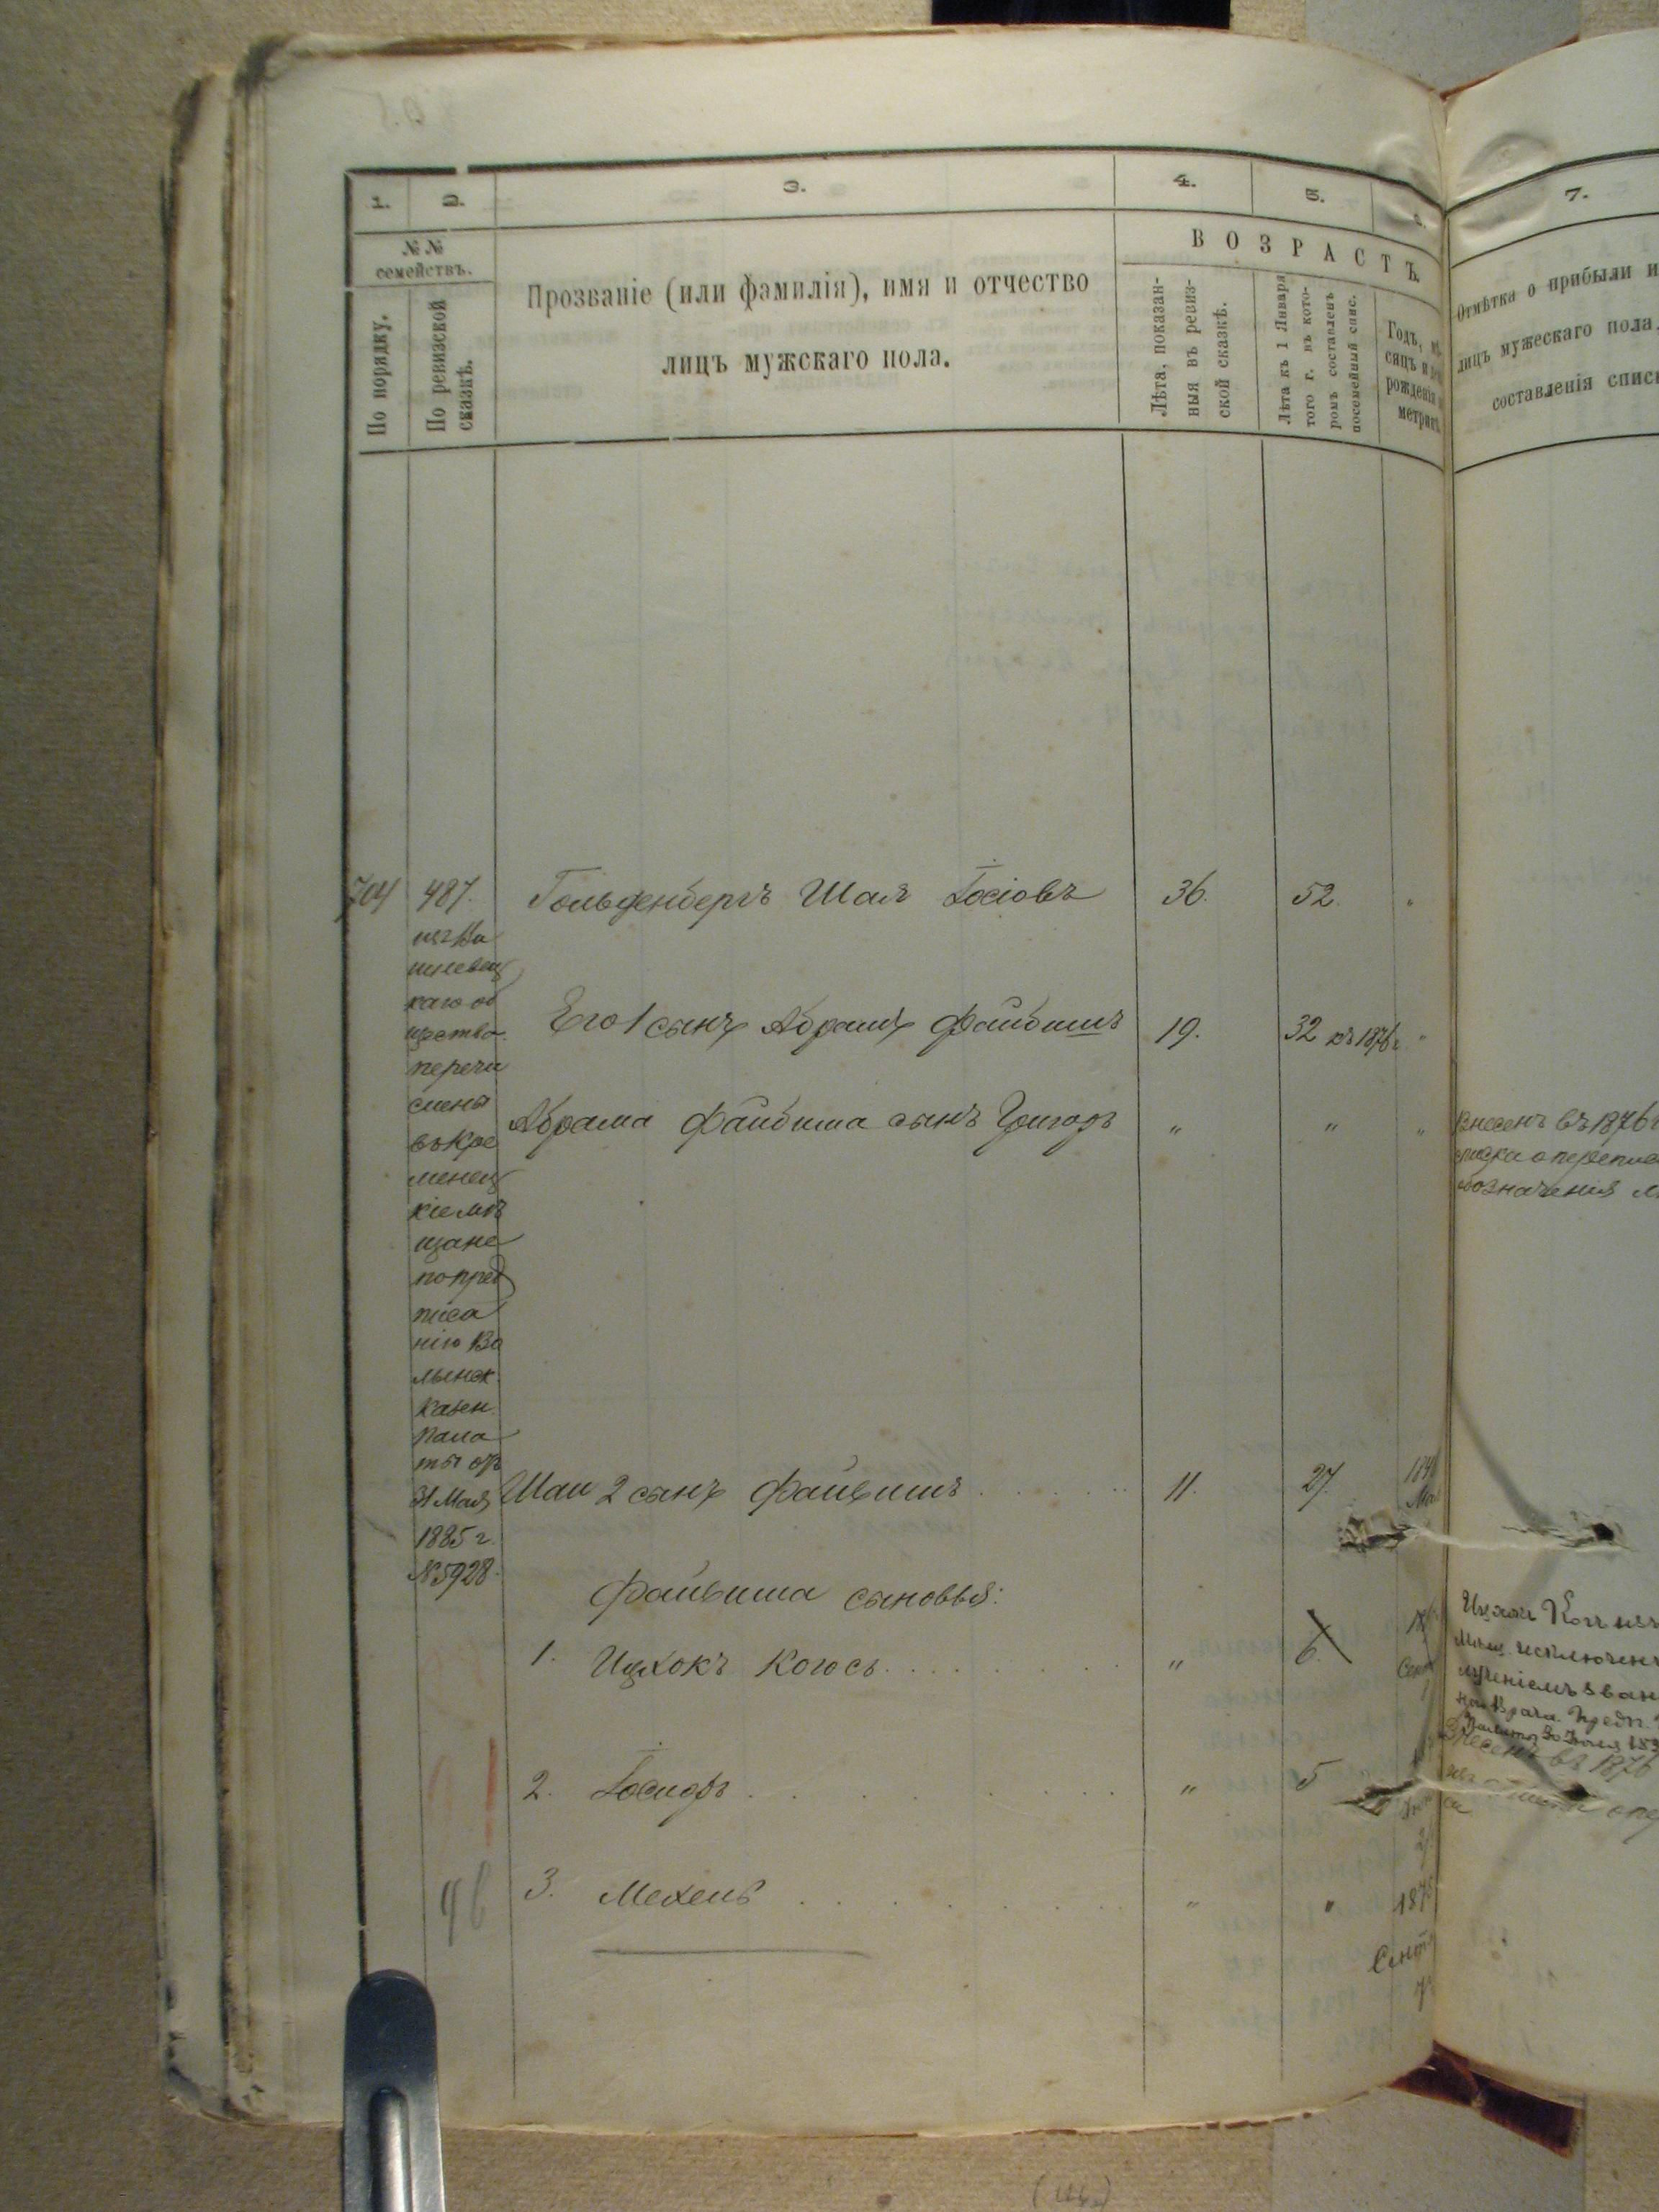 1.
2.
3.
4.
5.
7.
№№
семействъ.
По порядку.
По ревизской
сказкѣ.
Прозваніе (или фамилія), имя и отчество
лицъ мужскаго пола.
ВОЗРАСТЪ.
Лѣта, показан-
ныя въ ревиз-
ской сказкѣ.
Лѣта къ 1 Января
того г. въ кото-
ромъ составленъ
посемейный спис.
Годъ, мѣ-
сяцъ и
рожденія
метрик
Отмѣтка о прибыли и
лицъ мужескаго пола
составленія списк
704
487.
Гольденбергъ Шая Іосіовъ
36.
52.
каго об
щества
перечи
слены
въ Кре
менец
кіе мѣ
щане
по пред
писа
нію Во
лынск.
Казен.
Пала
ты отъ
31 Мая
1885 г.
№5928.
Его 1 сынъ Абрамъ Файбишъ
19.
32 къ 1876 г
"
Абрама Файбиша сынъ Григоръ
"
"
"
Внесенъ въ 1876 г
обозначенія
Шаи 2 сынъ Файвишъ
11.
27.
Файвиша сыновья:
1. Ицхокъ Когосъ
"
6.
исключенъ
Врача. Предп.
2. Іосифъ
"
5
Внесенъ въ 1876
3. Мехель
"
"
187
Сент
96